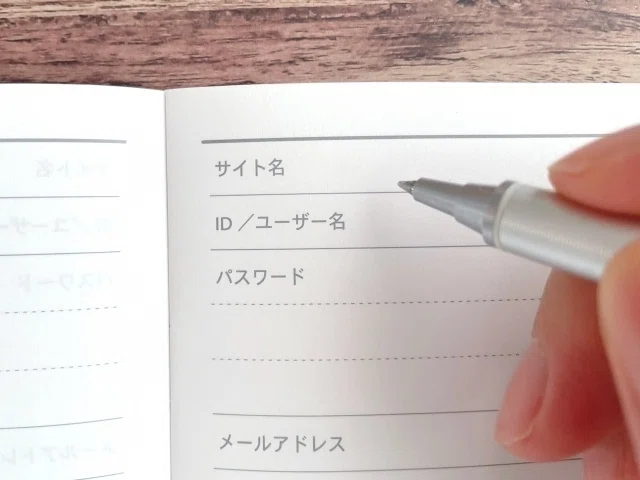 サイト名
ID／ユーザー名
パスワード
メールアドレス